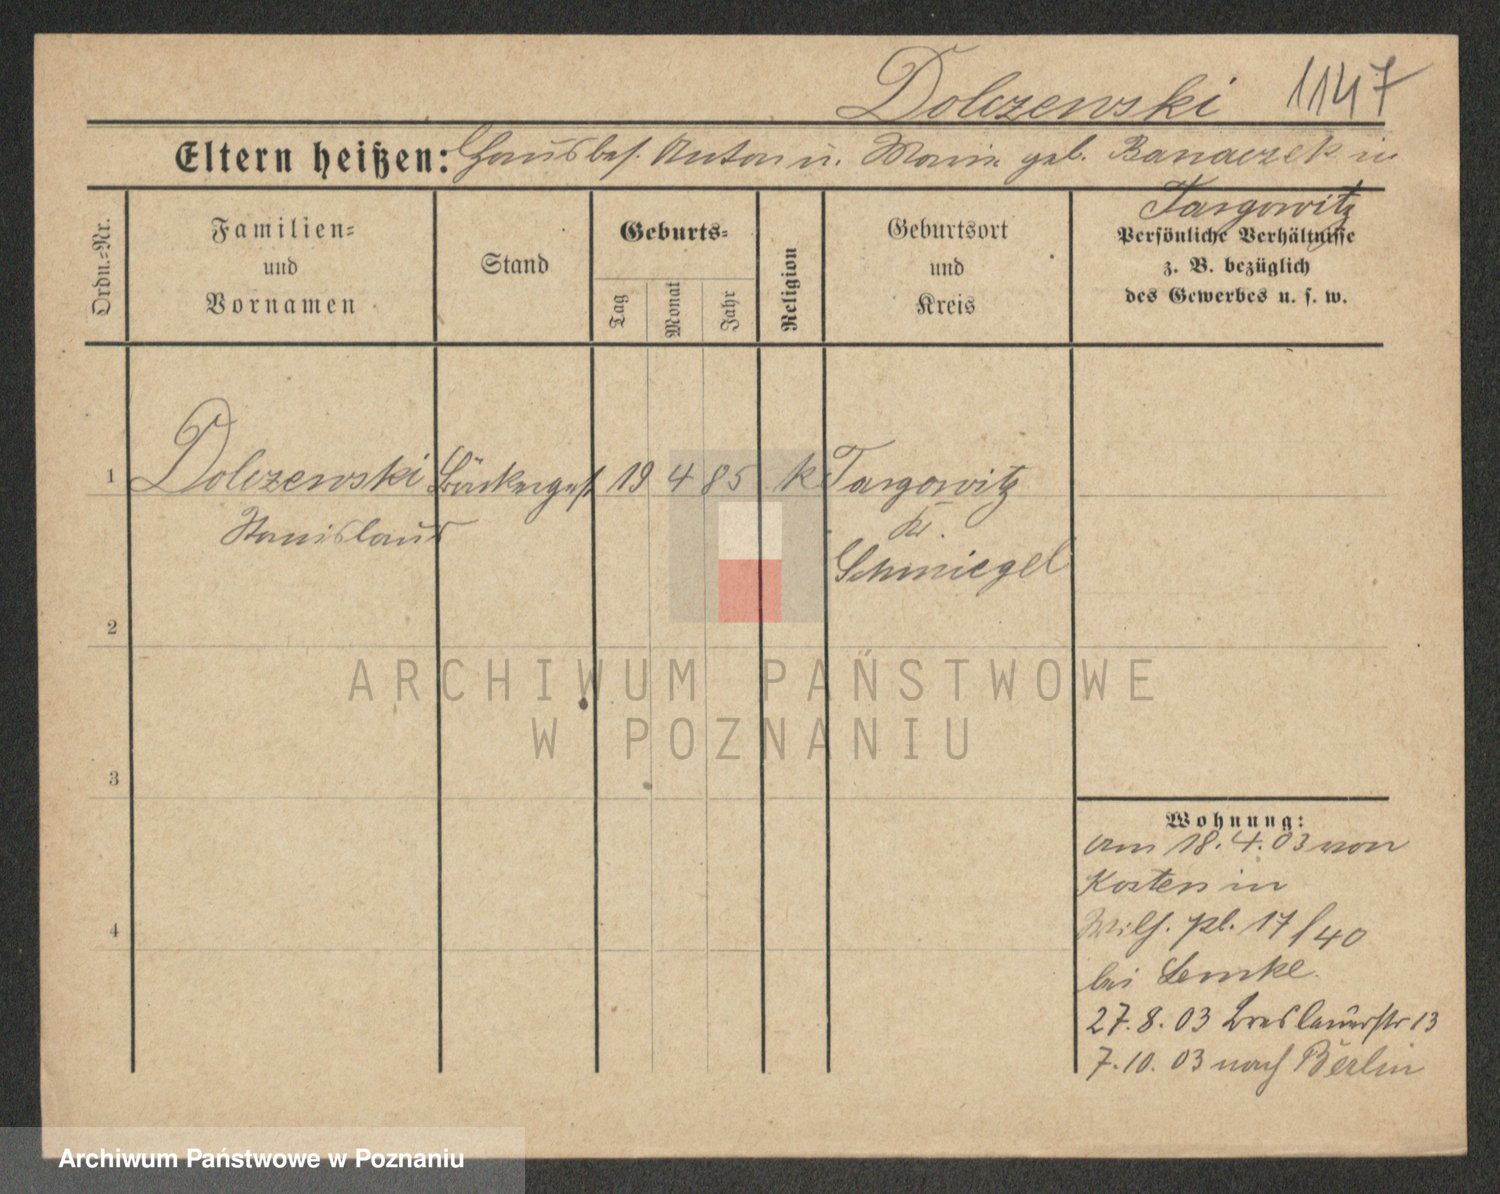 Dolczewski 1147
Eltern heißen: Hausbes. Anton u. Marie geb. Banaczek in
Targowitz
Ordn.=Nr.
Familien=
und
Vornamen
Stand
Geburts=
Tag
Monat
Jahr
Religion
Geburtsort
und
Kreis
Persönliche Verhältnisse
z. B. bezüglich
des Gewerbes u. s. w.
1 Dolczewski Bäckerges. 19 4 85 k Targowitz
Stanislaus
Kr.
Schmiegel
2
3
4
ARCHIWUM PAŃSTWOWE
W POZNANIU
Wohnung:
am 18.4.03 von
Kosten in
Wilh. pl. 17/40
bei Lemke.
27.8.03 Breslauerstr 13
7.10.03 nach Berlin
Archiwum Państwowe w Poznaniu